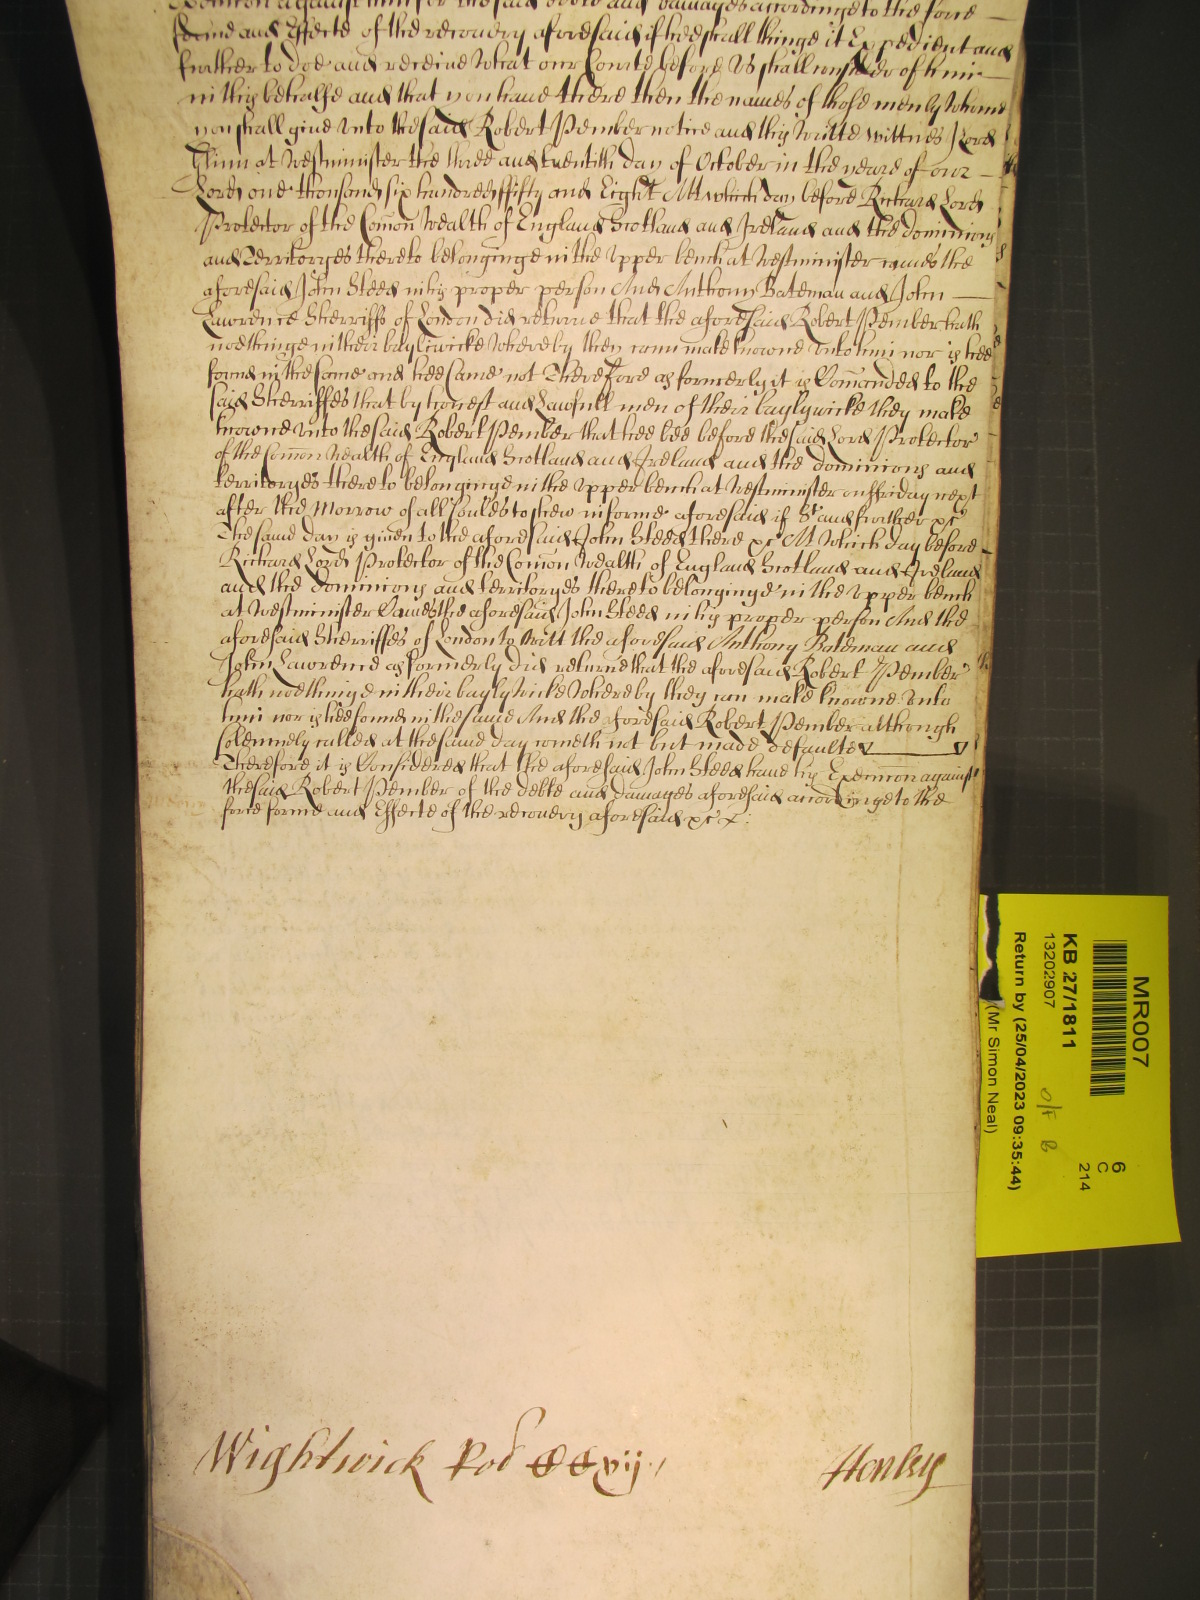 Execucon against him for the said debte and damages accordinge to the force
forme and Effecte of the recovery aforesaid if hee shall thinge it Expedient and
further to doe and receive what our Courte before us shall consider of him
in this behalfe and that you have there then the names of those men by whome
you shall give unto the said Robert Pember notice and this writte wittnes J Lord
Glinn at Westminister the three and twentith day of October in the yeare of our
Lord one thousand six hundred fifty and Eight Att which day before Richard Lord
Protector of the Com̄on wealth of England Scotland and Ireland and the dominions
and Territoryes thereto belonginge in the upper bench at Westminister comes the
aforesaid John Steed in his proper person And Anthony Bateman and John
Lawrence Sherriffs of London did returne that the aforesaid Robert Pember hath
noethinge in their baylywicke whereby they cann make knowne unto him nor is hee
found in the same and hee Came not Therefore as formerly it is Com̄anded to the
said Sherriffes that by honest and Lawfull men of their baylywicke they make
knowne unto the said Robert Pember that hee bee before the said Lord Protector
of the Com̄on wealth of England Scotland and Ireland and the dominions and
territoryes thereto belonginge in the upper bench at Westminister on ffriday next
after the Morrow of all soules to shew in forme aforesaid if &c and further &c
The same day is given to the aforesaid John Steed there &c Att which day before
Richard Lord Protector of the Com̄on wealth of England Scotland and Ireland
and the dominions and territoryes thereto belonginge in the upper bench
at Westminister Comes the aforesaid John Steed in his proper person And the
aforesaid Sherriffes of London to witt the aforesaid Anthony Bateman and
John Lawrence as formerly did returne that the aforesaid Robert Pember
hath noethinge in their baylywicke whereby they can make knowne unto
him nor is hee found in the same And the aforesaid Robert Pember although
solemnely called at the same day cometh not but made defaulte
Therefore it is Considered that the aforesaid John Steed have his Execucon against
the said Robert Pember of the debte and damages aforesaid accordinge to the
force forme and Effecte of the recovery aforesaid &c
Wightwick Rod CCxvij
Henley
MR007
KB 27/1811
13202907
Return by (25/04/2023 09:35:44)
(Mr Simon Neal)
6
C
214
o/f B